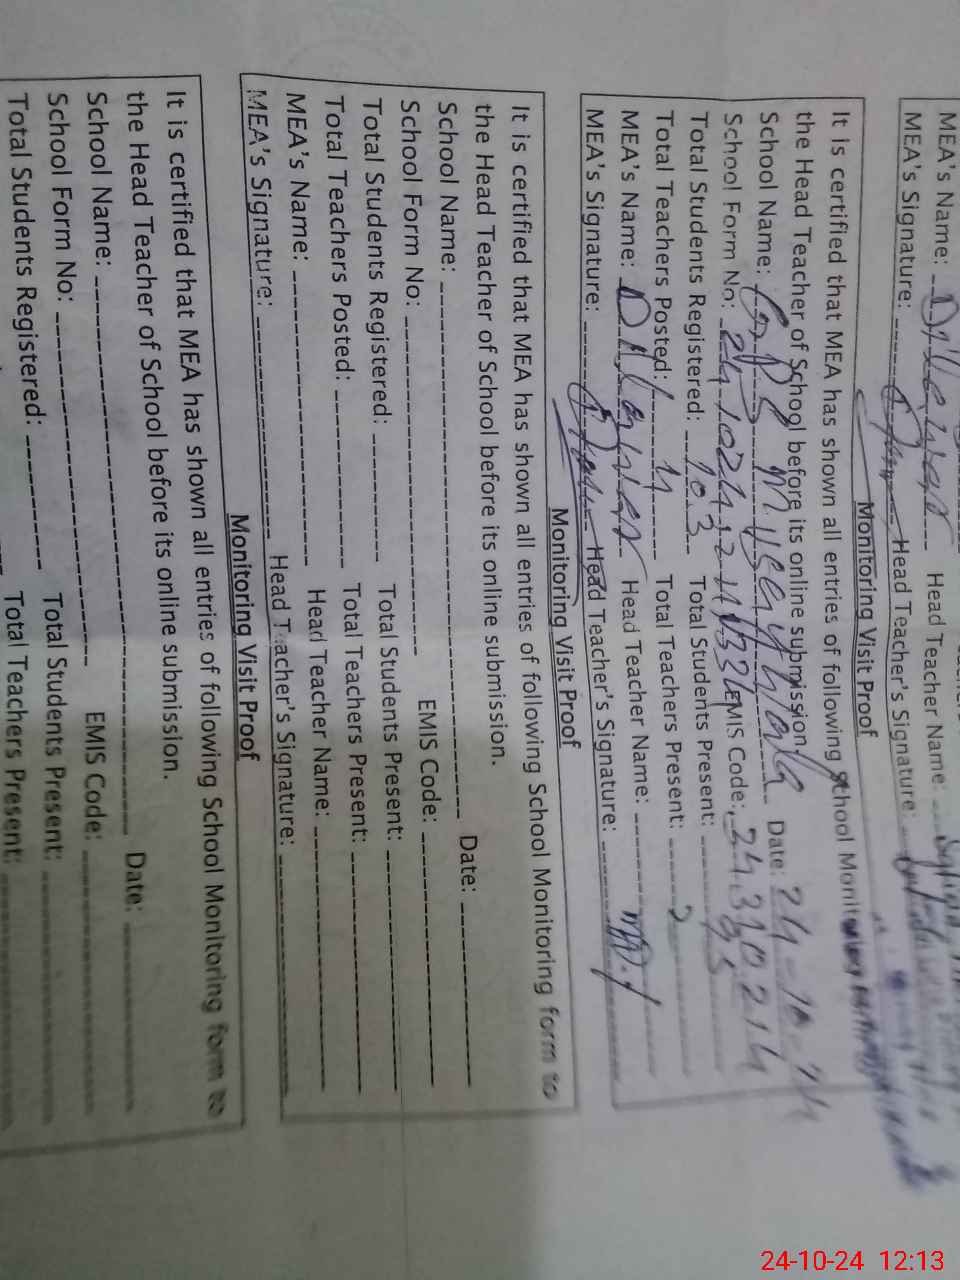 MEA's Name: Head Teacher Name:
MEA's Signature: Head Teacher's Signature:
Monitoring Visit Proof
It is certified that MEA has shown all entries of following School Monitoring form to
the Head Teacher of School before its online submission.
School Name: Date: 24-10-24
School Form No: EMIS Code: 24310214
Total Students Registered: 103 Total Students Present: 95
Total Teachers Posted: 4 Total Teachers Present: 2
MEA's Name: Head Teacher Name:
MEA's Signature: Head Teacher's Signature:
Monitoring Visit Proof
It is certified that MEA has shown all entries of following School Monitoring form to
the Head Teacher of School before its online submission.
School Name: Date:
School Form No: EMIS Code:
Total Students Registered: Total Students Present:
Total Teachers Posted: Total Teachers Present:
MEA's Name: Head Teacher Name:
MEA's Signature: Head Teacher's Signature:
Monitoring Visit Proof
It is certified that MEA has shown all entries of following School Monitoring form to
the Head Teacher of School before its online submission.
School Name: Date:
School Form No: EMIS Code:
Total Students Registered: Total Students Present:
Total Teachers Present:
24-10-24 12:13